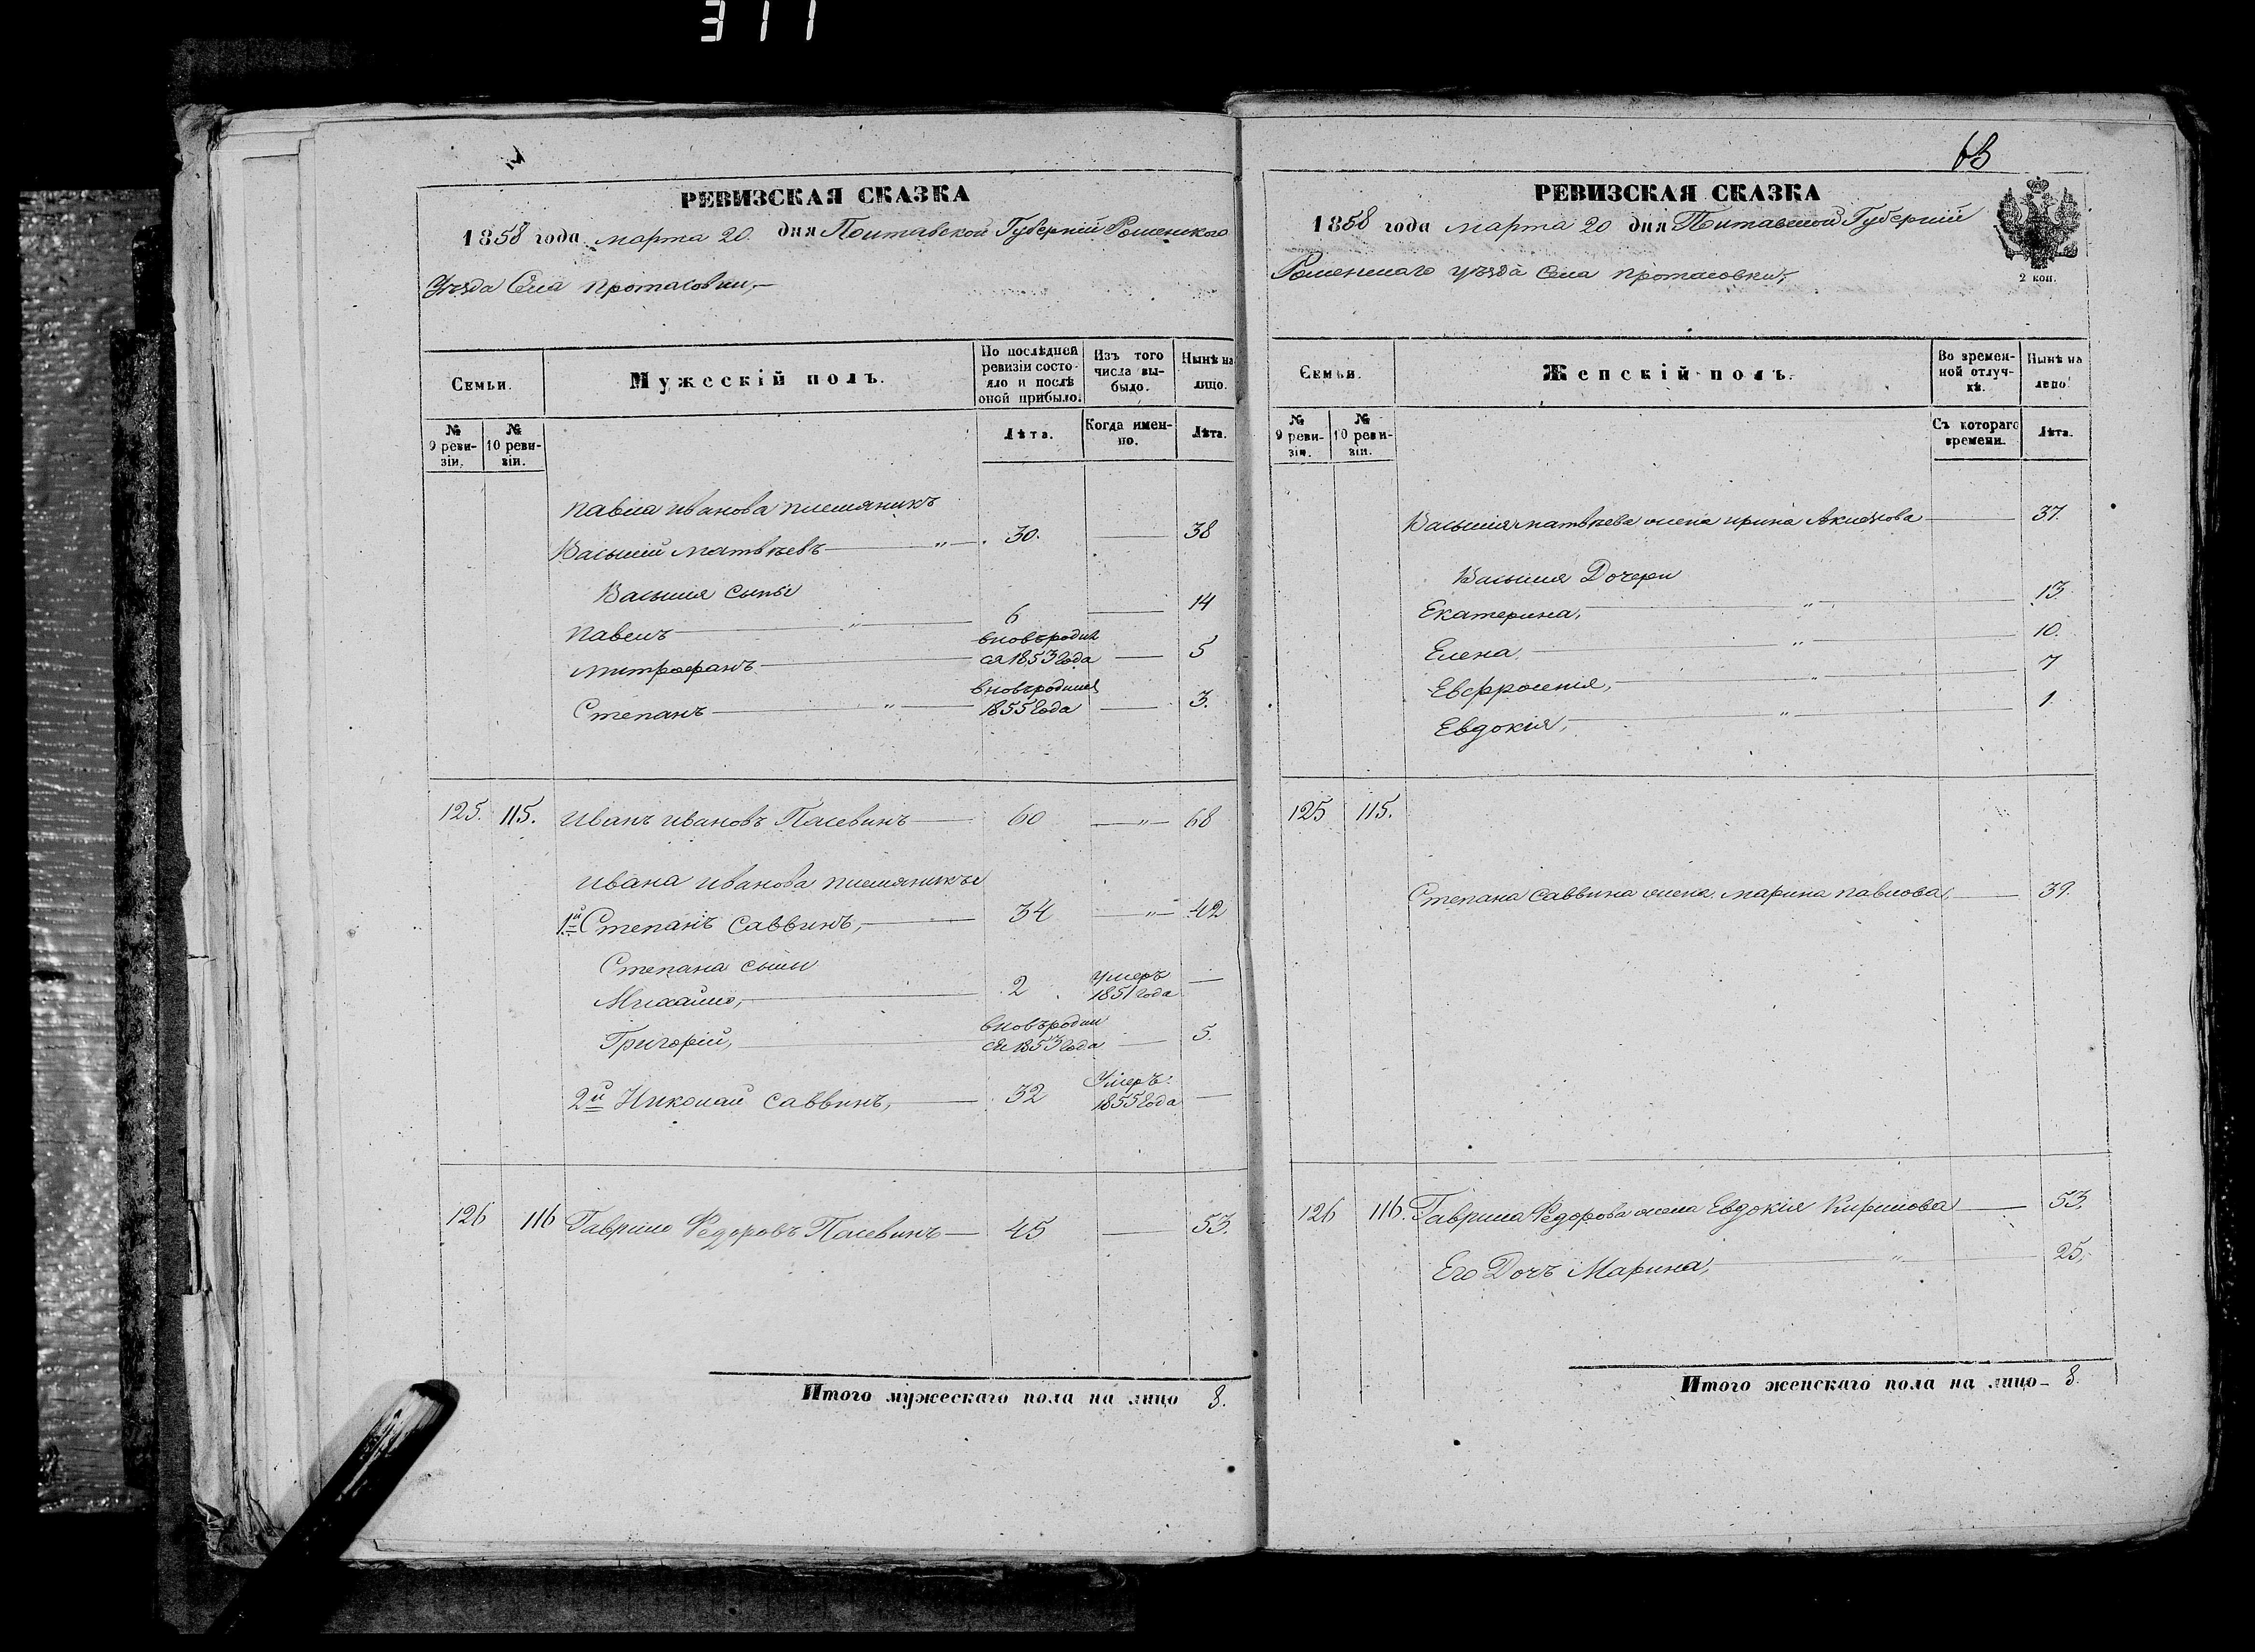 311
РЕВИЗСКАЯ СКАЗКА
1858 года марта 20 дня Полтавской Губерніи Роменского
Уѣзда Села Протасовки,
Семьи.
Мужескій полъ.
По послѣдней ревизіи состояло и послѣ оной прибыло.
Изъ того числа выбыло.
Нынѣ на лицо.
№ 9 ревизіи.
№ 10 ревизіи.
Лѣта.
Когда именно.
Лѣта.
Павла иванова племяникъ
Василій матвѣевъ — " — 30. — 38
Василія сыны
Павелъ — " — 6 — 14
митрофанъ — вновьродил
ся 1853 года — 5
Степанъ — " — вновьродился
1855 года — 3.
125. 115. Иванъ ивановъ Пасевинъ — 60 — " — 68
Ивана иванова племяникы
1й Степанъ Саввинъ, — 34 — " — 42
Степана сыны
Михайло, — 2 Умеръ
1851 года —
Григорій, — вновьродил
ся 1853 года — 5.
2й Николай Саввинъ, — 32 Умеръ
1855 года —
126 116 Гаврило Федоровъ Пасевинъ — 45 — 53.
Итого мужескаго пола на лицо 8.
63
РЕВИЗСКАЯ СКАЗКА
1858 года марта 20 дня Полтавской Губерніи
Роменскаго уѣзда Села протасовки,
2 коп.
Семьи.
Женскій полъ.
Во временной отлучкѣ.
Нынѣ на лицо.
№ 9 ревизіи.
№ 10 ревизіи.
Съ котораго времени.
Лѣта.
Василія матвѣева жена ирина — 37.
Василія Дочери
Екатерина, — " — 13.
Елена, — " — 10.
Евфросенія, — " — 7
Евдокія, — " — 1.
125 115.
Степана Саввина жена марина павлова, — 39.
126 116. Гаврила Федорова жена Евдокія Кирилова — 53.
Его Дочъ Марина, — " — 25,
Итого женскаго пола на лицо — 8.